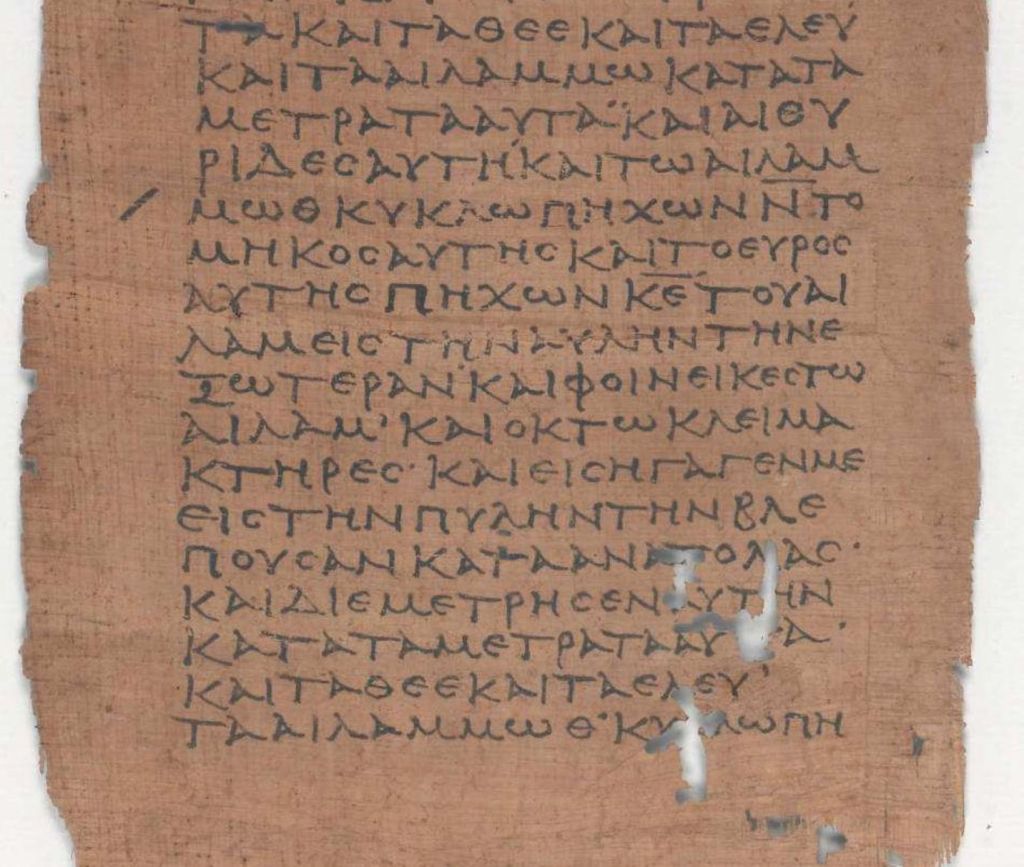 ΤΑΚΑΙΤΑΘΕΕΚΑΙΤΑΕΛΕΥ
ΚΑΙΤΑΑΙΛΑΜΜΩΚΑΤΑΤΑ
ΜΕΤΡΑΤΑΑΥΤΑ·ΚΑΙΑΙΘΥ
ΡΙΔΕϹΑΥΤΗ᾽ΚΑΙΤΩΑΙΛΑΜ
ΜΩΘΚΥΚΛΩΠΗΧΩΝΝ̅ΤΟ
ΜΗΚΟϹΑΥΤΗϹΚΑΙΤΟΕΥΡΟϹ
ΑΥΤΗϹΠΗΧΩΝΚ̅Ε̅ΤΟΥΑΙ
ΛΑΜΕΙϹΤΗΝΑΥΛΗΝΤΗΝΕ
ΞΩΤΕΡΑΝ·ΚΑΙΦΟΙΝΕΙΚΕϹΤΩ
ΑΙΛΑΜ᾽ΚΑΙΟΚΤΩΚΛΕΙΜΑ
ΚΤΗΡΕϹ·ΚΑΙΕΙϹΗΓΑΓΕΝΜΕ
ΕΙϹΤΗΝΠΥΛΗΝΤΗΝΒΛΕ
ΠΟΥϹΑΝΚΑΤΑΑΝΑΤΟΛΑϹ·
ΚΑΙΔΙΕΜΕΤΡΗϹΕΝΑΥΤΗΝ
ΚΑΤΑΤΑΜΕΤΡΑΤΑΑΥΤΑ·
ΚΑΙΤΑΘΕΕΚΑΙΤΑΕΛΕΥ᾽
ΤΑΑΙΛΑΜΜΩΘ·ΚΥΚΛΩΠΗ